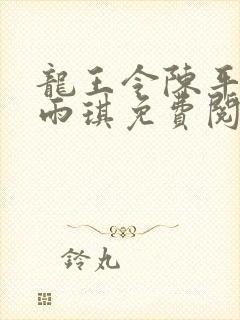 龍王令陳平
雨琪免費閱
鈴丸